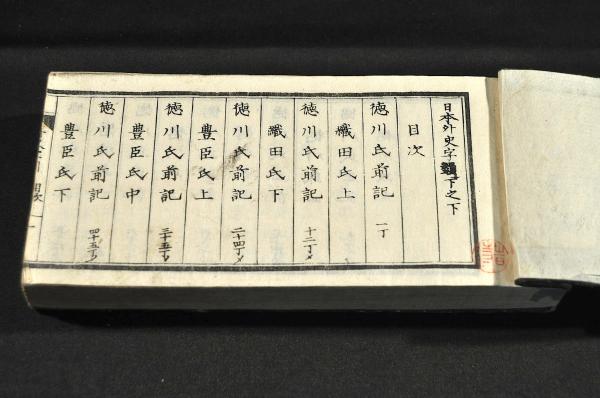 日本外史字類下之下
目次
徳川氏前記 一丁
織田氏上
徳川氏前記 十二丁メ
織田氏下
徳川氏前記 二十四丁メ
豊臣氏上
徳川氏前記 三十五丁メ
豊臣氏中
徳川氏前記 四十五丁メ
豊臣氏下